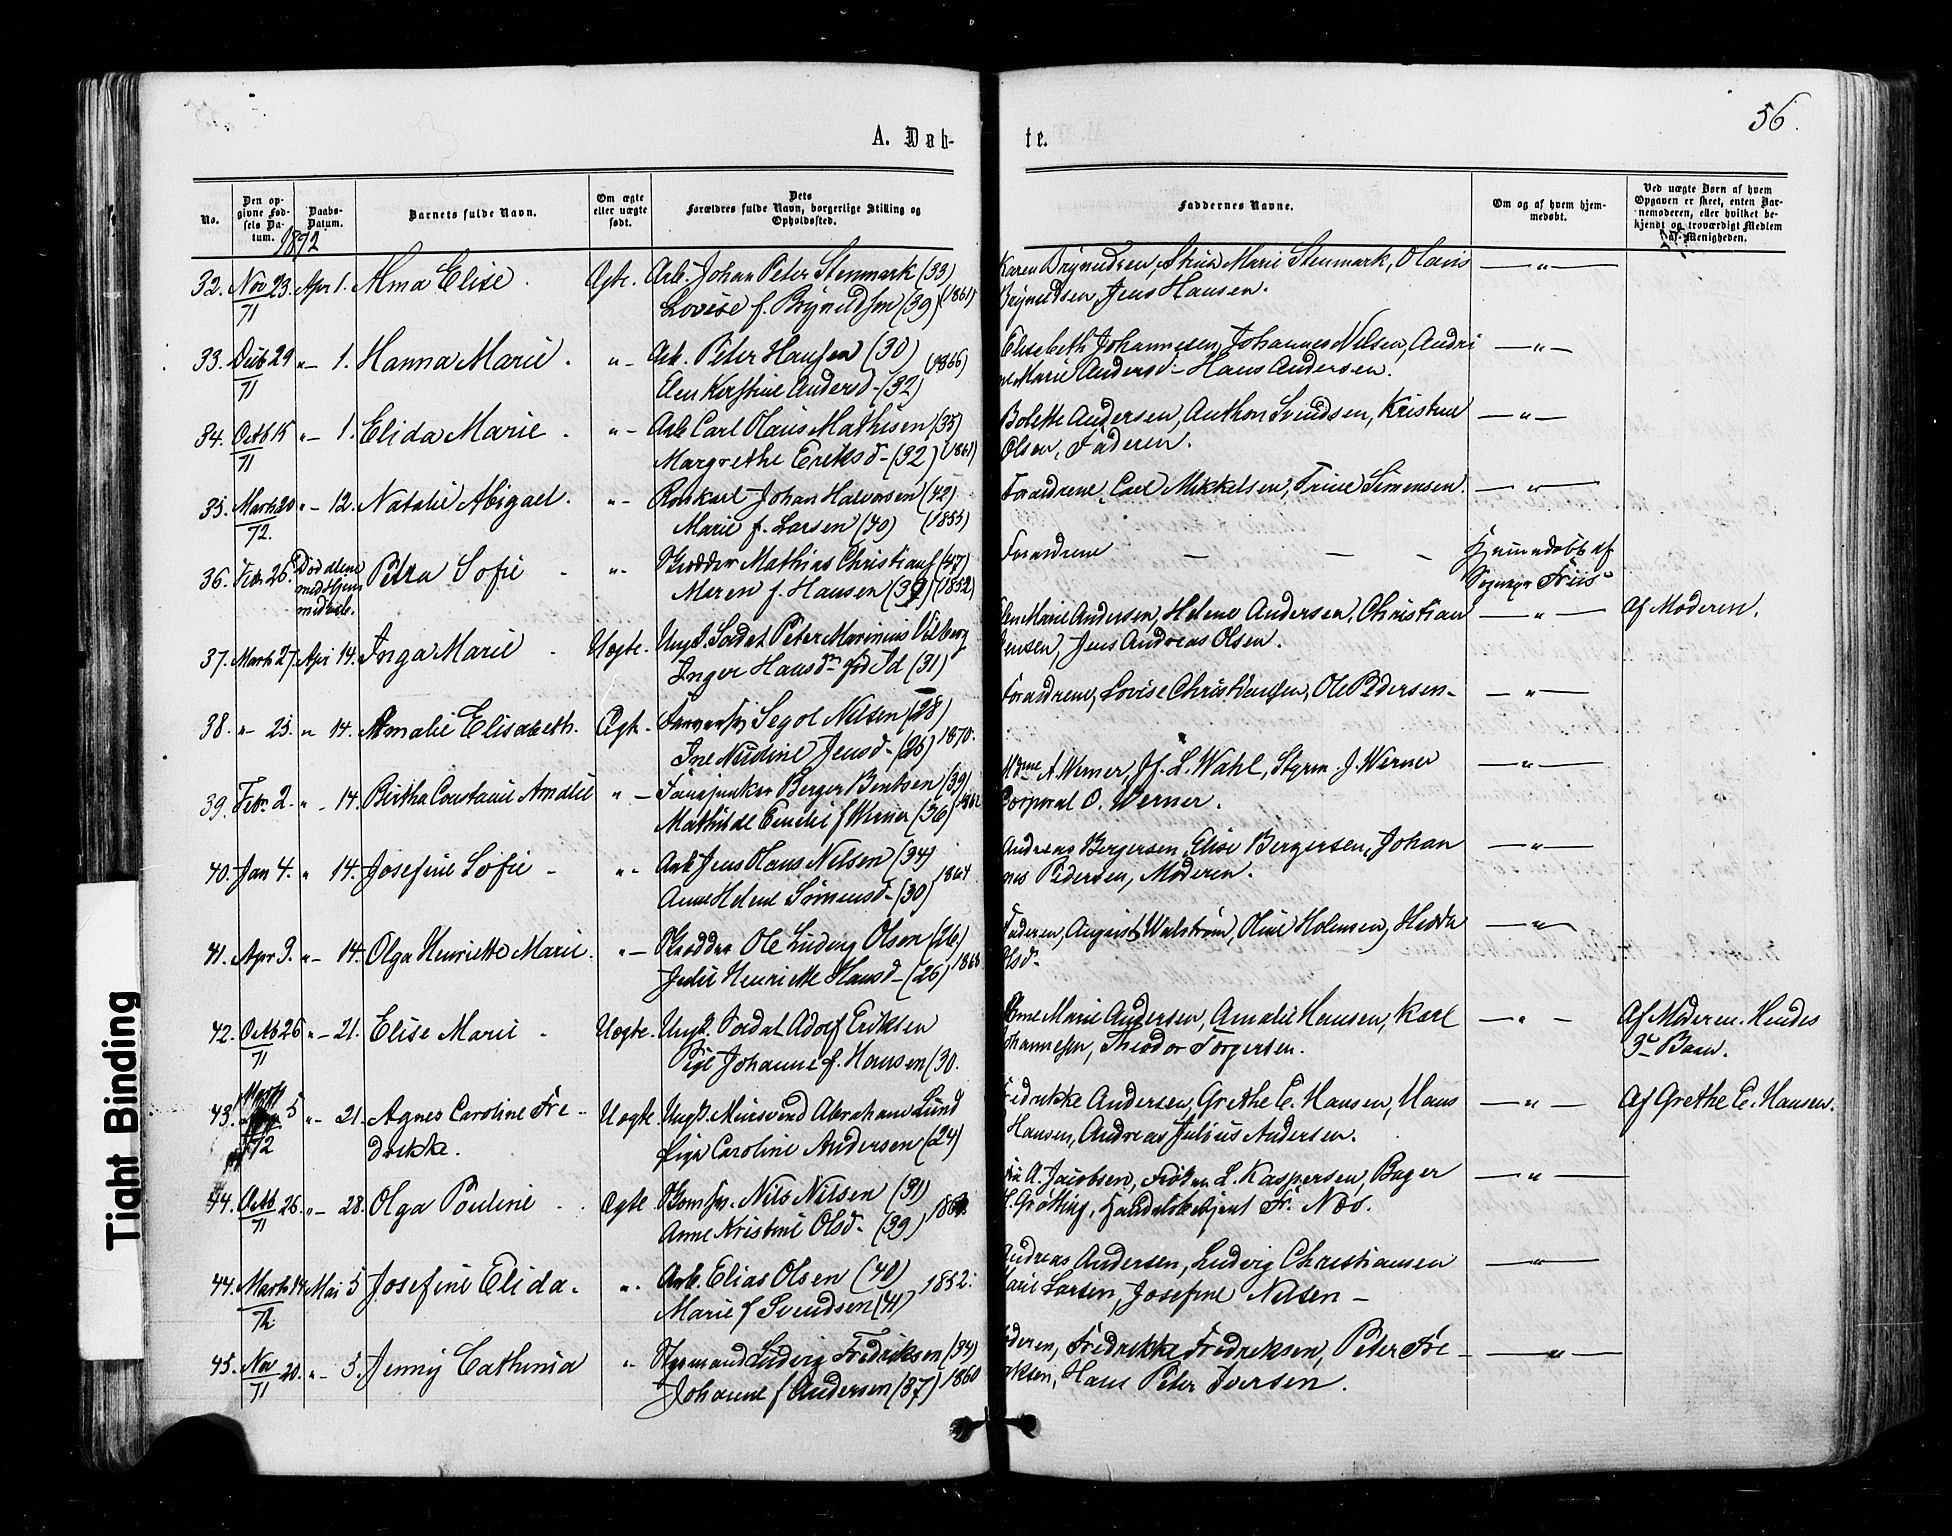 56.
A. Døb-
te.
No.
Den op-
givne Fød-
sels Da-
tum.
Daabs-
Datum.
Barnets fulde Navn.
Om ægte
eller uægte
født.
Dets
Forældres fulde Navn, borgerlige Stilling og
Opholdssted.
Faddernes Navne.
Om og af hvem hjem-
medøbt.
Ved uægte Børn af hvem
Opgaven er skeet, enten Bar-
nemoderen, eller hvilket be-
kjendt og troværdigt Medlem
af Menigheden.
1872
32. Nov 23. Apr 1. Alma Elise. Ægte. Arb. Johan Peter Stenmark (33)
71 Lovise f. Brynildsen (39) (1861)
Karen Brynildsen, Marie Stenmark, Olaus
Brynildsen, Jens Hansen. — " —
33. Decb 29 " — 1. Hanna Marie. " - Arb. Peter Hansen (30) (1866)
71 Elen Kirstine Andersd - (32)
Elisabeth Johannesen, Johannes Nilsen, Andri
ne Marie Andersd - Hans Andersen. — " —
34. Octb 15 " — 1. Elida Marie. " — Arb Carl Olaus Mathisen (35)
71 Margrethe Eriksd - (32) (1861)
Bolette Andersen, Anthon Svendsen, Kristine
Olsen, Faderen. — " —
35. Marts 20 " — 12. Natalie Abigael. " - Johan Halvorsen (42)
72. Marie f. Larsen (40) (1855)
Forældrene, Carl Mikkelsen, Trine Simensen. — " —
36. Febr 26. Petra Sofie - " - Mathias Christians (47)
Maren f. Hansen (39) (1852)
Forældrene — — - Hjemmedøbt af
Friis
37. Marts 27. Apr 14. Inga Marie. Uægte. Ungk. Soldat Peter Marinius Vilberg
Inger Hansd - (31)
Marie Andersen, Helene Andersen, Christian
Jensen, Jens Andreas Olsen. — " — Af Moderen.
38. " 25. " 14. Amalie Elisabeth. Ægte. Segol Nilsen (28)
Ine Jensd - (26) 1870.
Forældrene, Lovise Christiansen, Ole Pedersen - — " —
39. Febr. 2. " — 14. Birtha Constance Amalie " — Berger Bentsen (39)
Mathilde Emilie f Werner (36)
A. Werner, Jf. L. Wahl, Styrm. J. Werner
Corporal O. Werner. — " —
40. Jan 4. " 14. Josefine Sofie - " - Arb Jens Olaus Nilsen (34)
Anne Helene Simensd - (30) 1864
Andreas Bergersen, Elise Bergersen, Johan
nes Pedersen, Moderen. — " —
41. Apr 3. " — 14. Olga Henriette Marie. " — Ole Ludvig Olsen (26)
Julie Henriette Hansd - (26)
Faderen, August Walstrøm, Oline Holmsen, Hedda
Olsd - — " —
42. Octb 26 " — 21. Elise Marie. Uægte. Ungk. Soldat Adolf Eriksen
71 Pige Johanne f. Hansen (30.
Anne Marie Andersen, Amalie Hansen, Karl
Johannesen, Theodor Torgersen. — " — Af Moderen. Hendes
3die Barn.
43. 5 " — 21. Agnes Caroline Fre- Uægte Ungk. Murersvend Abraham Lund
72 drikke. Pige Caroline Andersen (24)
Fredrikke Andersen, Grethe C. Hansen, Hans
Hansen, Andreas Julius Andersen. — " — Af Grethe C. Hansen.
44. Octb 26. " — 28. Olga Pouline. Ægte Nils Nilsen (31)
71 Anne Kristine Olsd. (39)
A. Jacobsen, Frøken L. Kaspersen, Bager
Grøtting, Handelsbetjent Fr. Næs. — " —
44. Marts 14 Mai 5 Josefine Elida. " - Arb. Elias Olsen (40)
72. Marie f Svendsen (41) 1852.
Andreas Andersen, Ludvig Christiansen
Marie Larsen, Josefine Nilsen - — " —
45. Nov 20. " — 5. Jenny Cathinca " Styrmand Ludvig Fredriksen (34)
71 Johanne f Andersen (37) 1860
Faderen, Fredrikke Fredriksen, Peter Fre-
driksen, Hans Peter Iversen. — " —
Tight Binding